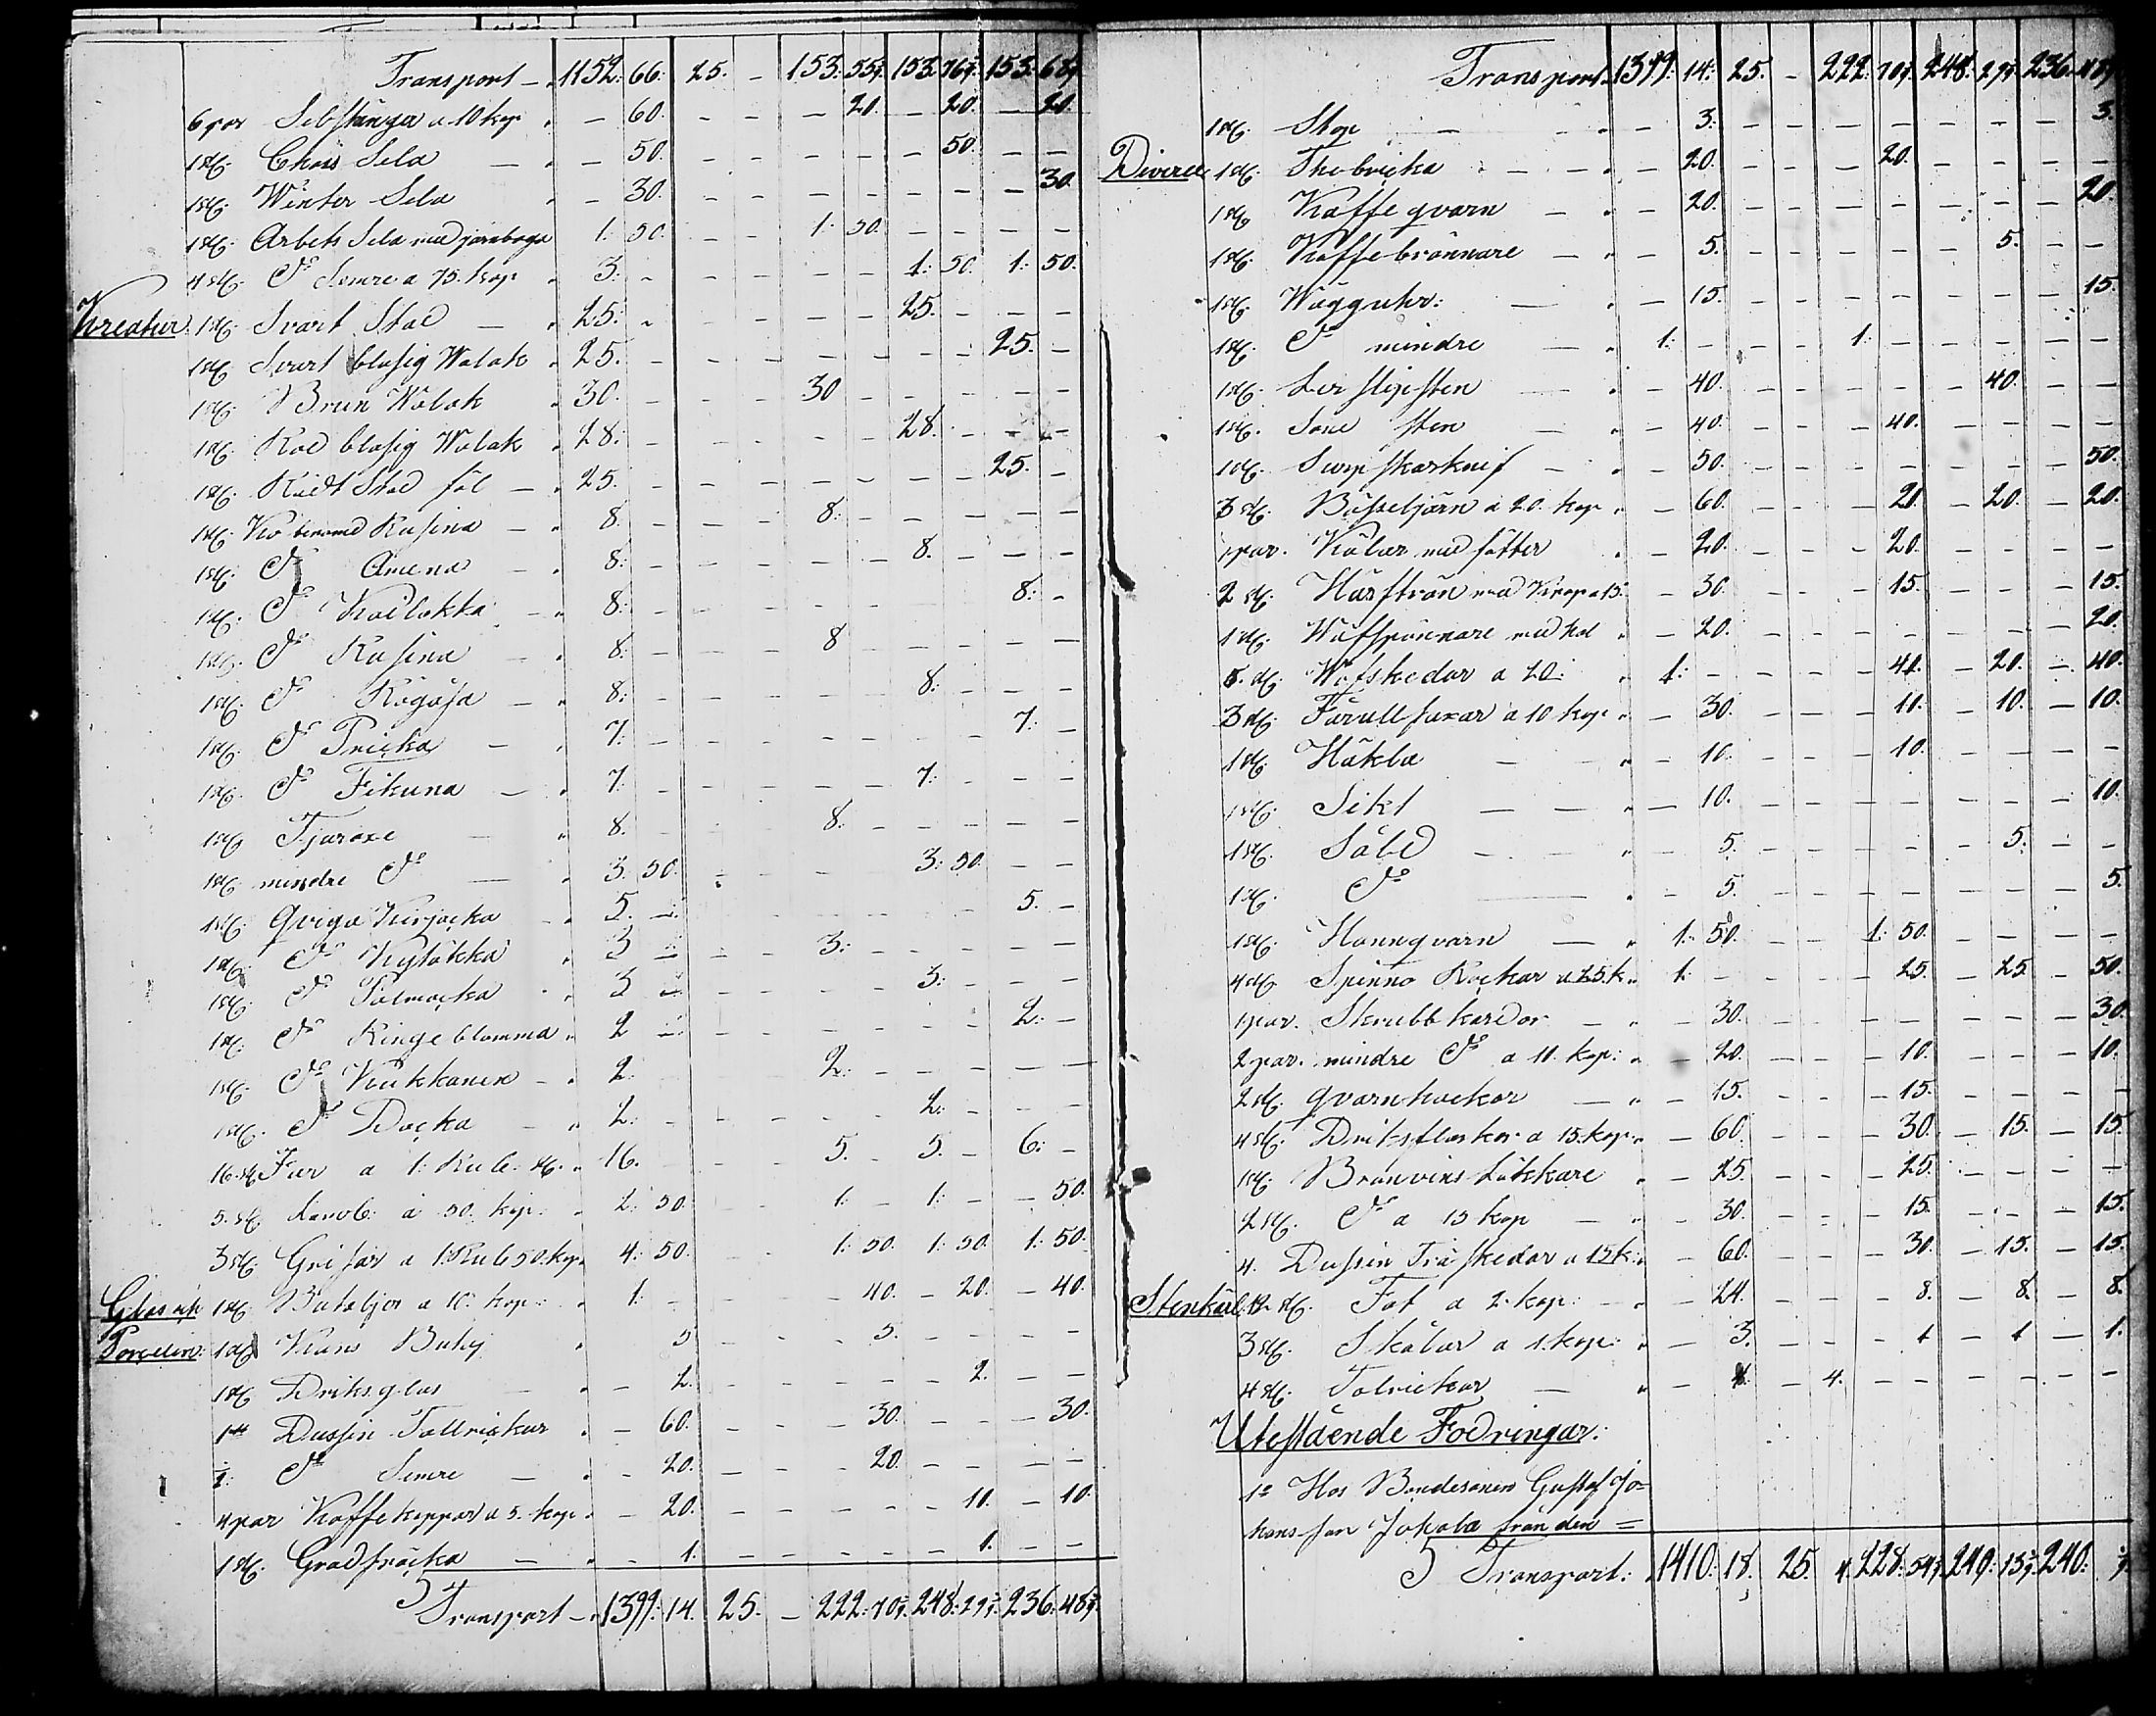 Transport 1152: 66: 25. – 153: 55 153: 76 153: 68
6 par Selstänga a 10 kop – 60. – – – 20. – 20. – 20.
1 st. Chäis Sela – 50. – – – – – 50. – –
1 st. Winter Sela – 30. – – – – – – – 30.
1 st. Arbets Sela med jernboga 1: 50. – – 1: 50. – – – –
4 st. Do Semre a 75. kop 3: – – – – – 1: 50. 1: 50.
Kreatur: 1 st. Svart Sto 25: – – – – – 25. – – –
1 st. Svart blasig Walak 25. – – – – – – – 25. –
1 st. Brun Walak 30. – – – 30 – – – – –
1 st. Röd blasig Walak 28. – – – – – 28. – – –
1 st. Rödt Sto föl 25. – – – – – – – 25. –
1 st. Ko benämd Rusina 8. – – – 8: – – – – –
1 st. Do Amena 8: – – – – – 8. – – –
1 st. Do Kaelokka 8: – – – – – – – 8: –
1 st. Do Rusina 8: – – – 8 – – – – –
1 st. Do Rögåsa 8: – – – – – 8: – – –
1 st. Do Pricka 7: – – – – – – – 7: –
1 st. Do Fikuna 7: – – – – – 7: – – –
1 st. Tjuroxe 8. – – – 8: – – – – –
1 st. mindre Do 3. 50. – – – – 3: 50. – –
1 st. Qviga Kirjacka 5. – – – – – – – 5. –
1 st. Do Kylökka 3 – – – 3: – – – – –
1 st. Do Palmacka 3 – – – – – 3: – – –
1 st. Do Ringeblomma 2 – – – – – – – 2: –
1 st. Do Kukkanen 2: – – – 2: – – – – –
1 st. Do Docka 2: – – – – – 2: – – –
16. st. Får a 1: Rub. st. 16. – – – 5. – 5. – 6: –
5. st. Lamb: a 50. kop. 2: 50. – – 1: – 1: – – 50.
3 st. Grisar a 1: Rub 50. kop 4: 50. – – 1: 50. 1: 50. 1: 50.
Glas och 1 st. Buteljer a 10. kop: 1: – – – – 40. – 20. – 40.
Porcelin: 1 st. Butelj 5 – – – 5. – – – –
1 st. Driksglas – 2. – – – – – 2. – –
1 Dussin Tallrickar – 60. – – – 30. – – – 30.
1: Do Semre – 20. – – – 20. – – – –
4 par Kaffe koppar a 5. kop – 20. – – – – – 10. – 10.
1 st. Gradsnäcka – 1. – – – – – 1. – –
Transport 1399: 14. 25. – 222: 70 248: 29 236: 48
Transport 1399: 14: 25. – 222: 70 248: 29 236: 48
1 st. Stop – 3: – – – – – – – 3.
Diverse 1 st. Thebricka – 20. – – – 20. – – – –
1 st. Kaffe qvarn – 20. – – – – – – – 20.
1 st. Kaffebrännare – 5. – – – – – 5. – –
1 st. Wägguhr: – 15. – – – – – – – 15.
1 st. Do mindre 1: – – – 1: – – – – –
1 st. Ler slipsten – 40. – – – – – 40. – –
1 st. Sand sten – 40. – – – 40. – – – –
1 st. – 50. – – – – – – – 50.
3 st. Bösseljärn a 20. kop – 60. – – – 20. – 20. – 20.
1 par. Kälar med fötter – 20. – – – 20. – – – –
2 st. – 30. – – – 15. – – – 15.
1 st. Wäfspännare – 20. – – – – – – – 20.
5. st. Wäfskedar a 20: 1: – – – – 40. – 20. – 40.
3 st. Fårull saxar a 10 kop – 30. – – – 10. – 10. – 10.
1 st. Häkla – 10. – – – 10. – – – –
1 st. Sikt – 10. – – – – – – – 10.
1 st. Såld – 5. – – – – – 5. – –
1 st. Do – 5. – – – – – – – 5.
1 st. Hannqvarn 1: 50. – – 1: 50. – – – –
4 st. Spinno Rockar a 25. k. 1: – – – – 25. – 25. – 50.
1 par. Skrubb kardor – 30. – – – – – – – 30.
2 par. mindre Do a 10. kop: – 20. – – – 10. – – – 10.
2 st. qvarnhackor – 15. – – – 15. – – – –
4 st. Driksflaskor a 15. kop – 60. – – – 30. – 15. – 15.
1 st. Bränvins Lökkare – 25. – – – 25. – – – –
2 st. Do a 15 kop – 30. – – – 15. – – – 15.
4. Dussin Träskedar a 15 k: – 60. – – – 30. – 15. – 15.
Stenkäril 12 st. Fat a 2. kop: – 24. – – – 8. – 8. – 8.
3 st. Skålar a 1. kop: – 3. – – – 1 – 1 – 1.
4 st. Talrickar – 4. – 4. – – – – – –
Utestående Fodringar:
1o Hos Bondesonen Gustaf Jo=
hansson Jakola från den =
Transport: 1410: 18. 25. 4. 228: 54 249: 15 240: